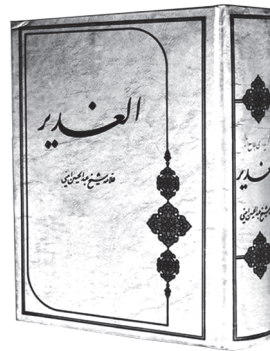 الغدیر
علامه شیخ عبدالحسین امینی
الغدیر
شیخ عبدالحسین امینی